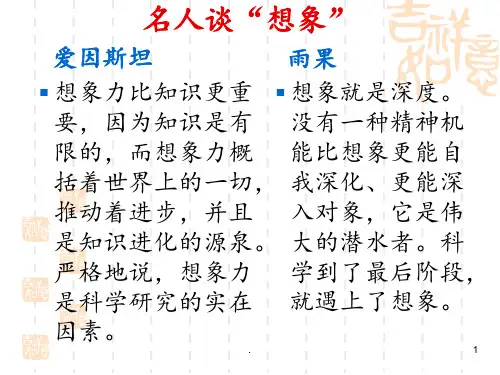 名人谈“想象”
爱因斯坦
想象力比知识更重
要，因为知识是有
限的，而想象力概
括着世界上的一切，
推动着进步，并且
是知识进化的源泉。
严格地说，想象力
是科学研究的实在
因素。
雨果
想象就是深度。
没有一种精神机
能比想象更能自
我深化、更能深
入对象，它是伟
大的潜水者。科
学到了最后阶段，
就遇上了想象。
.
1
吉祥
如意